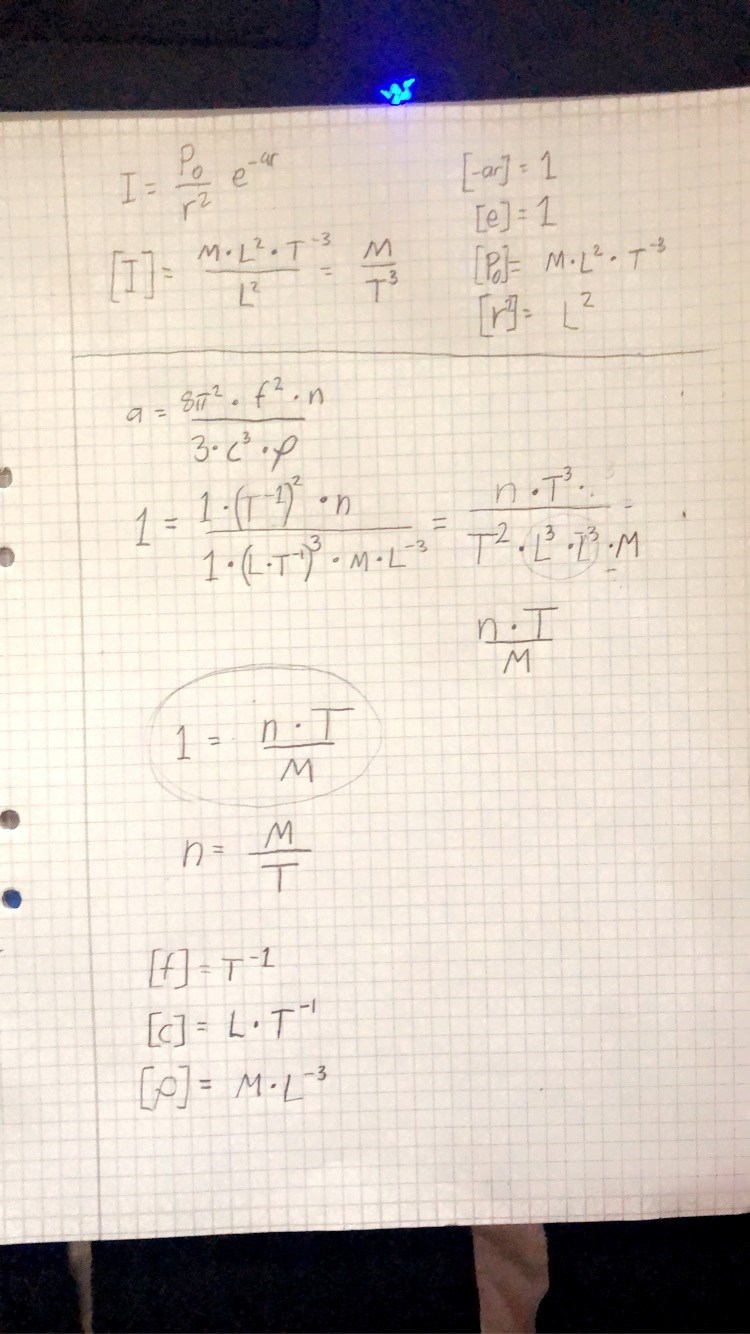 I = P₀/r² e^-ar
[-ar] = 1
[e] = 1
[I] = M·L²·T⁻³/L² = M/T³
[P₀] = M·L²·T⁻³
[r²] = L²
a = 8π²·f²·n/3·c³·ρ
1 = 1·(T⁻¹)²·n/1·(L·T⁻¹)³·M·L⁻³ = n·T³·/T²·L³·L³·M =
n·T/M
1 = n·T/M
n = M/T
[f] = T⁻¹
[c] = L·T⁻¹
[ρ] = M·L⁻³